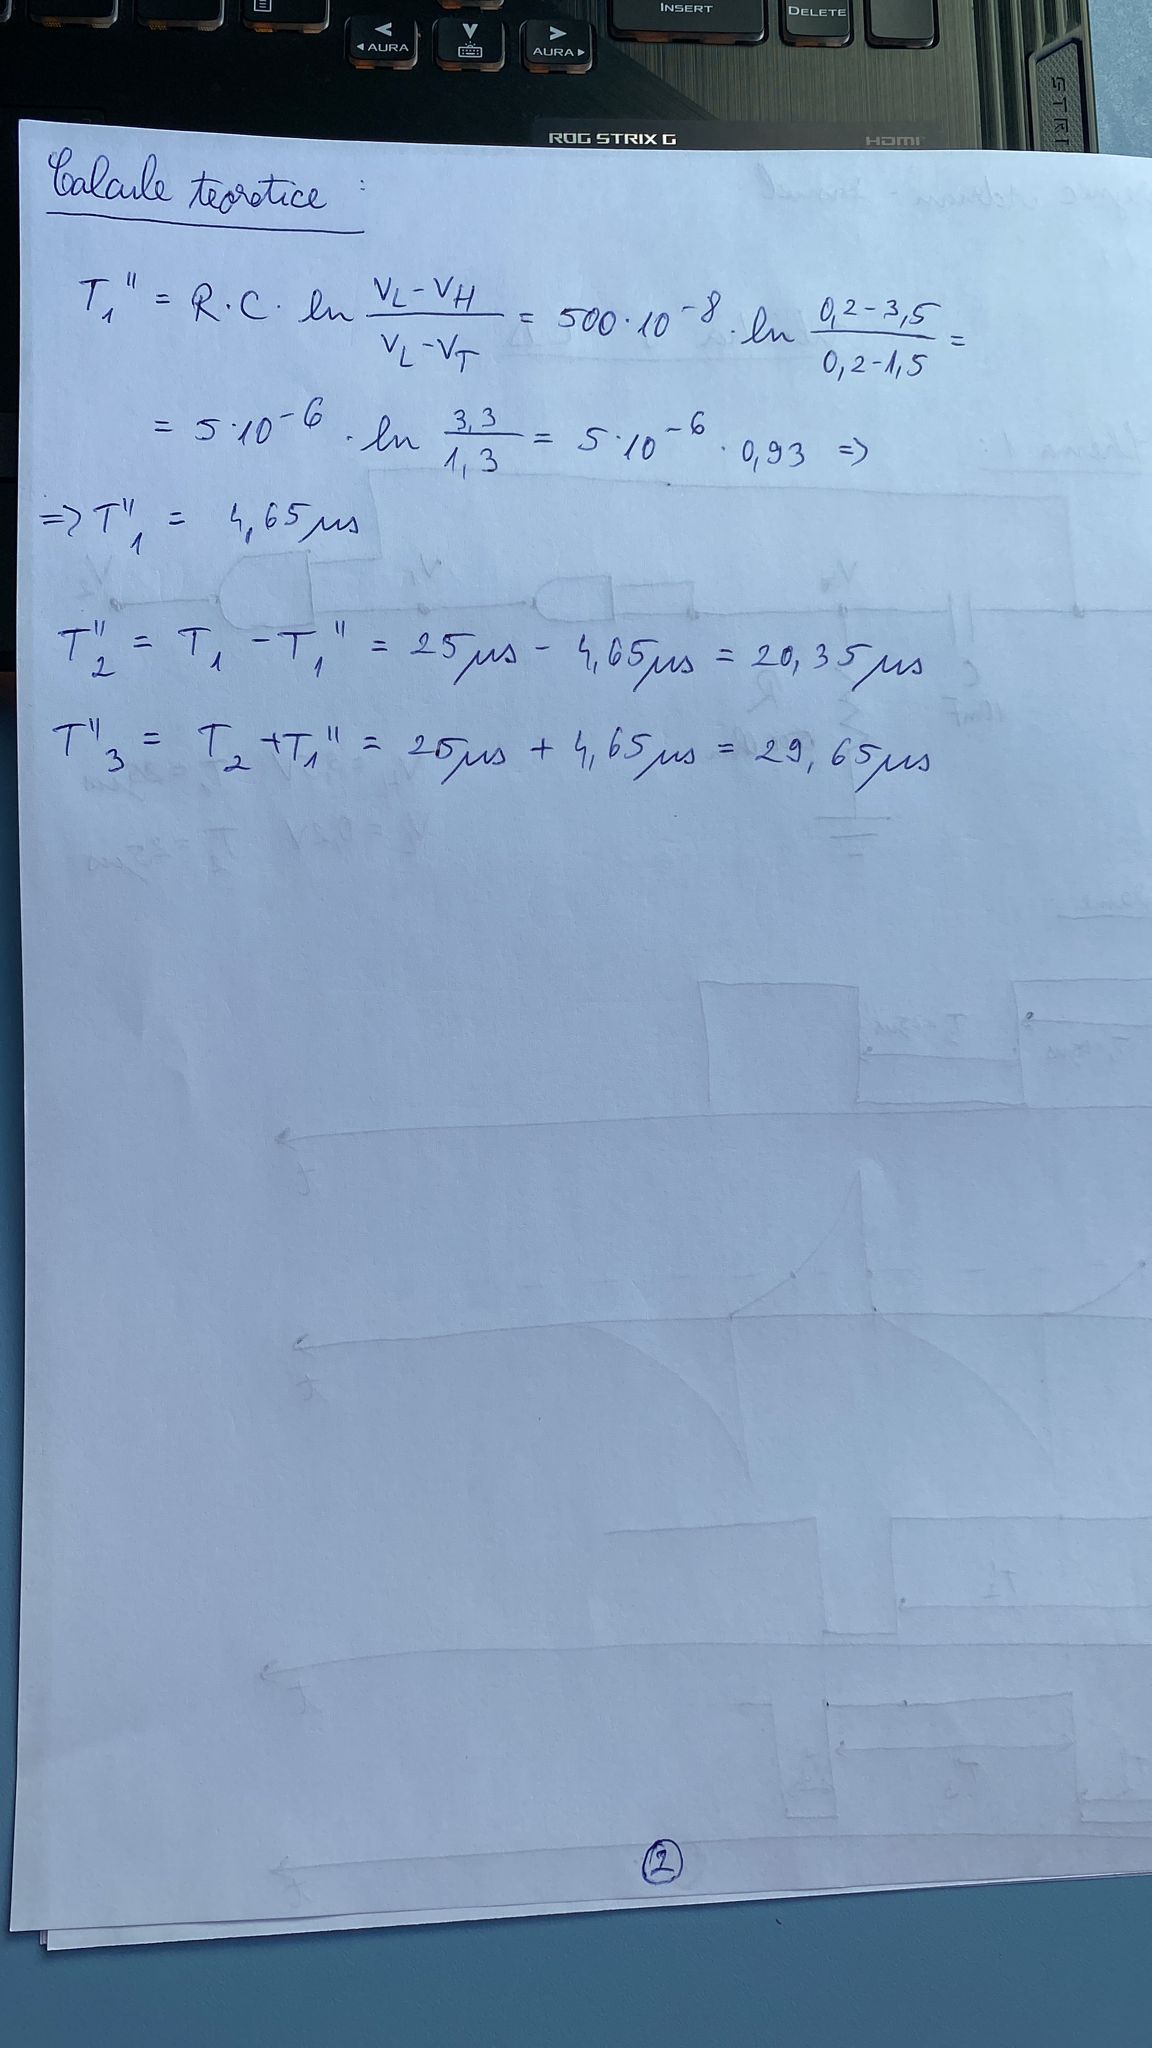 INSERT
DELETE
< AURA
V
> AURA
STRI
ROG STRIX G
HDMI
Calcule teoretice :
T₁'' = R·C· ln (VL-VH)/(VL-VT) = 500·10⁻⁸· ln (0,2-3,5)/(0,2-1,5) =
= 5·10⁻⁶ · ln 3,3/1,3 = 5·10⁻⁶ · 0,93 =>
=> T₁'' = 4,65 μs
T₂'' = T₁ - T₁'' = 25 μs - 4,65 μs = 20,35 μs
T₃'' = T₂ + T₁'' = 25 μs + 4,65 μs = 29,65 μs
2